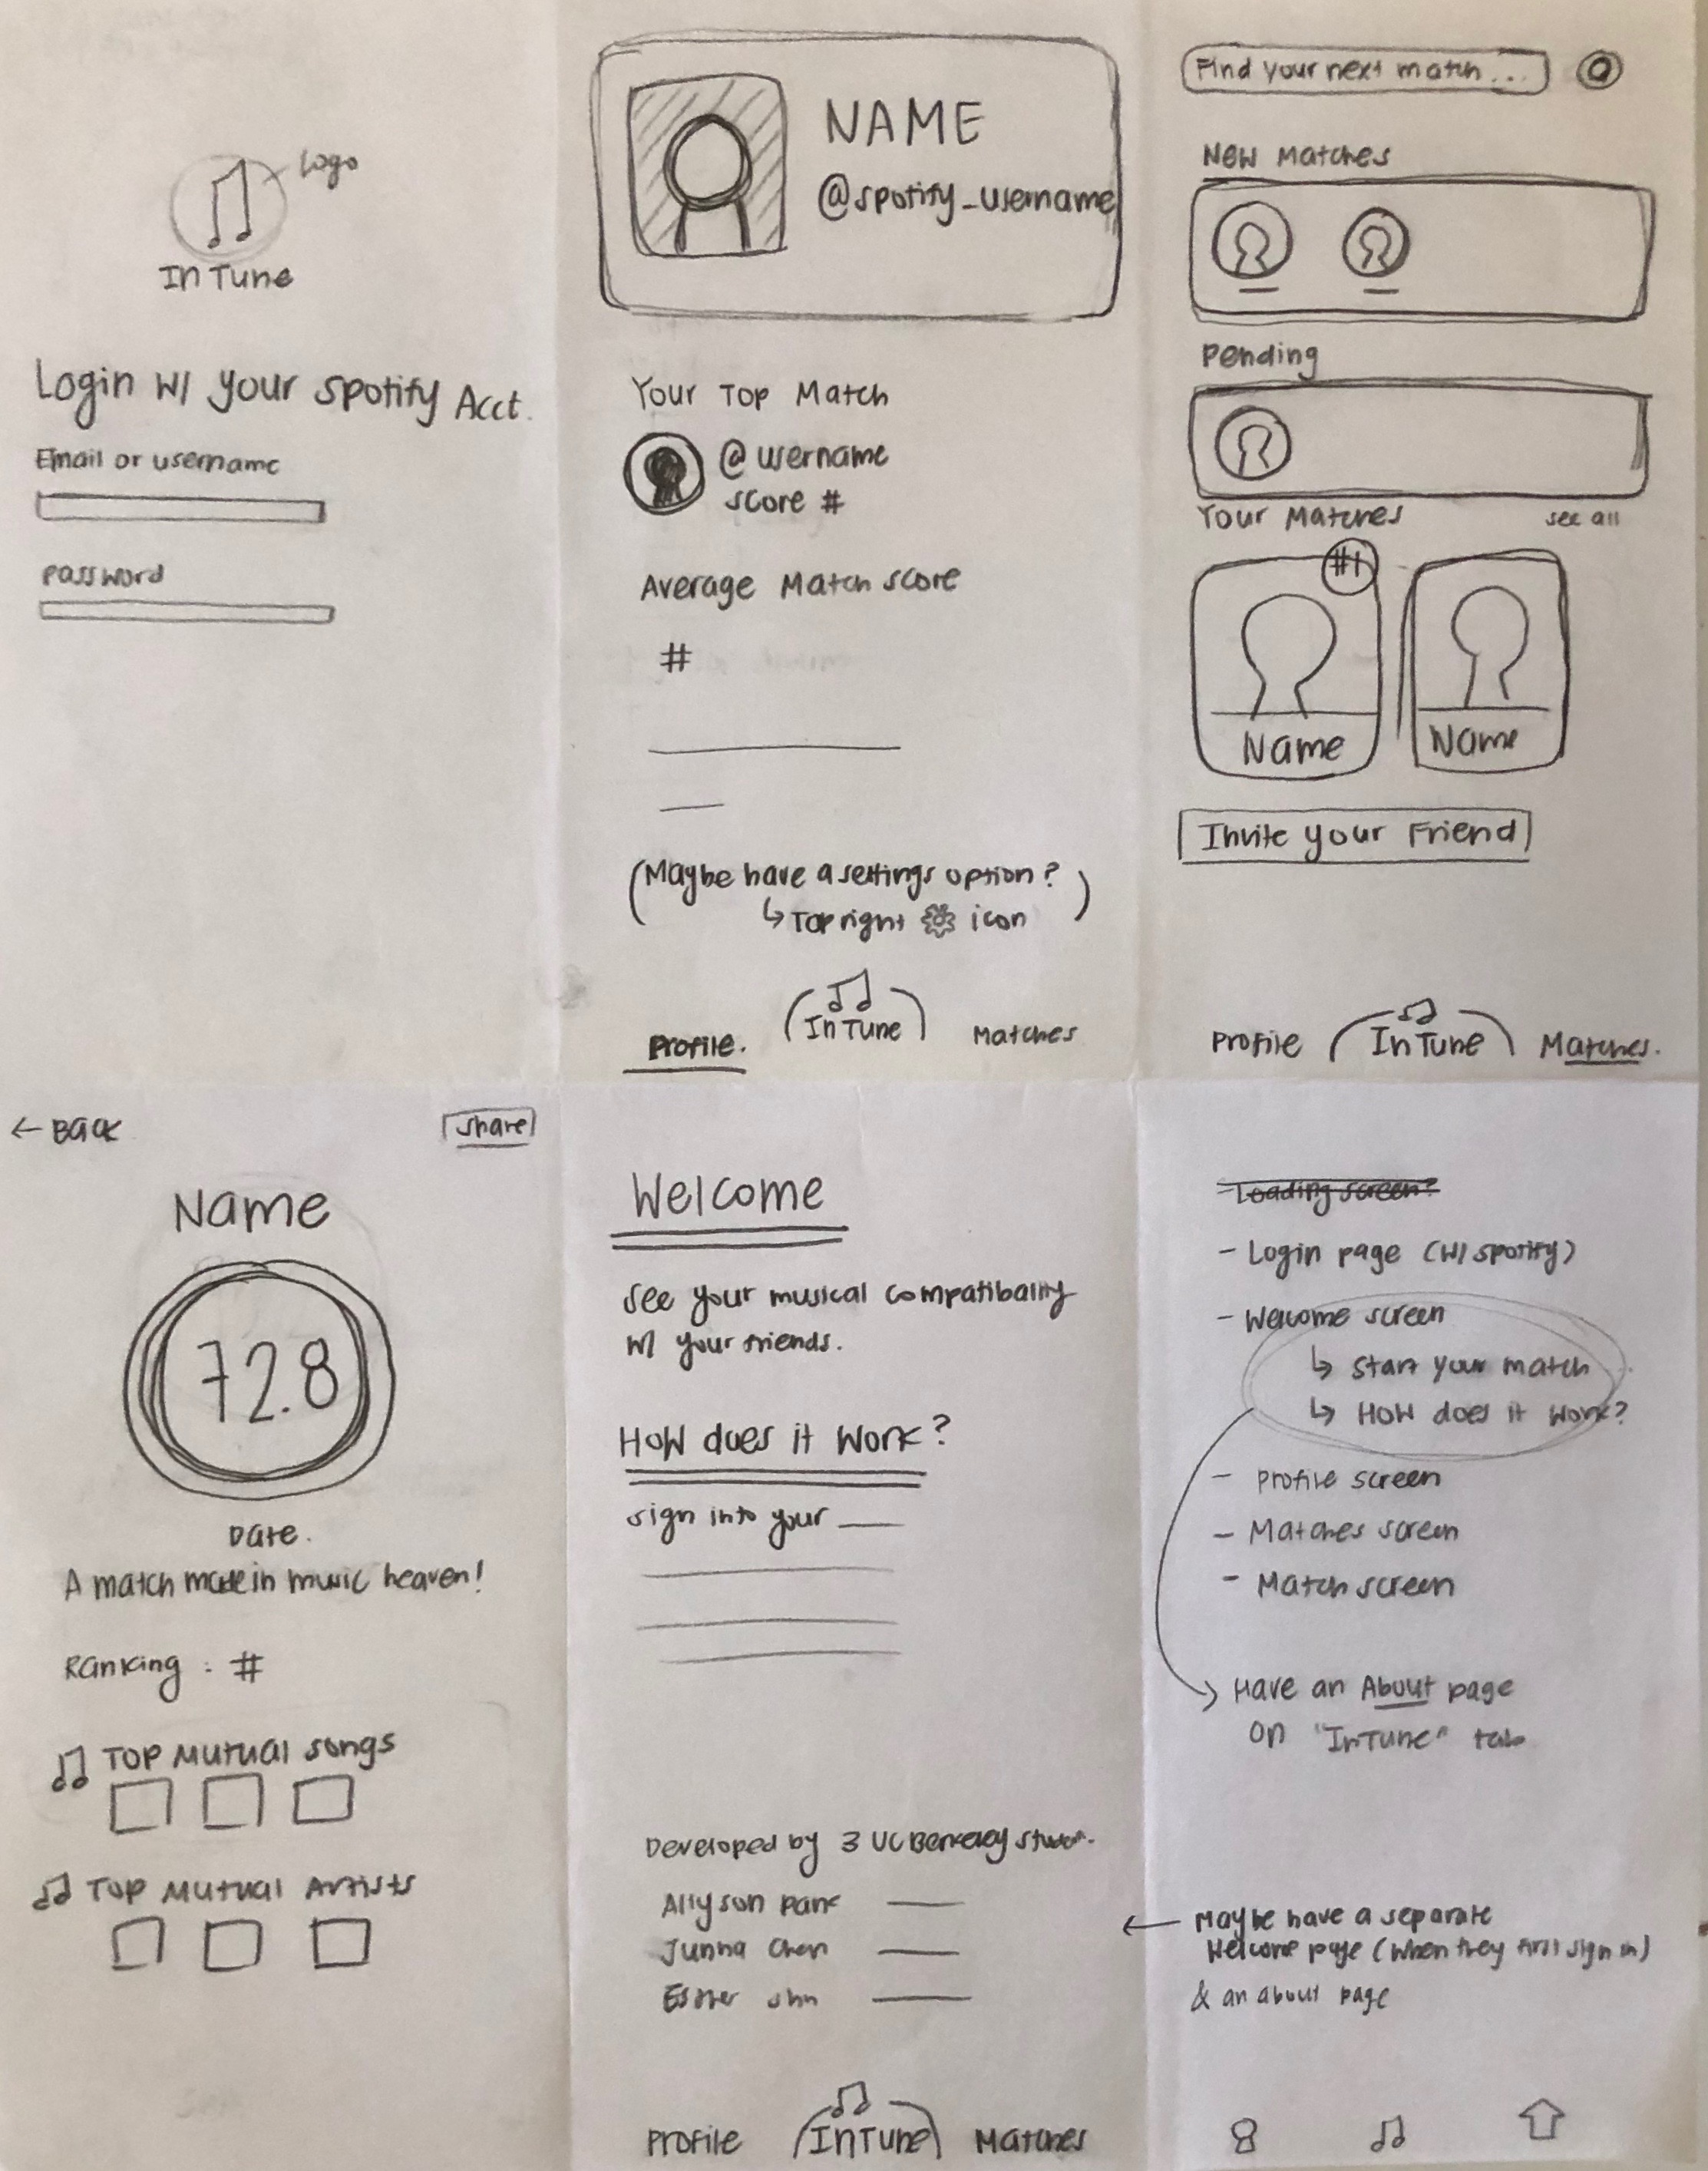 Logo
InTune
Login w/ your spotify Acct.
Email or username
password
NAME
@spotify_username
Your Top Match
@username
score #
Average Match score
#
(Maybe have a settings option?)
↳ Top right icon
Profile.
InTune
Matches
Find your next match...
New Matches
Pending
Your Matches
see all
#1
Name
Name
Invite your Friend
Profile
InTune
Matches.
← Back
Share
Name
72.8
Date.
A match made in music heaven!
Ranking : #
Top Mutual songs
Top Mutual Artists
Welcome
see your musical compatibality
w/ your friends.
How does it work?
sign into your
Developed by 3 UC Berkeley
Allyson
Junna Chen
Esther
Profile
InTune
Matches
- Loading screen?
- Login page (w/ spotify)
- Welcome screen
↳ start your match
↳ How does it work?
- profile screen
- Matches screen
- Match screen
→ Have an About page
on "InTune" tab
← Maybe have a separate
Welcome page (when they first sign in)
& an about page